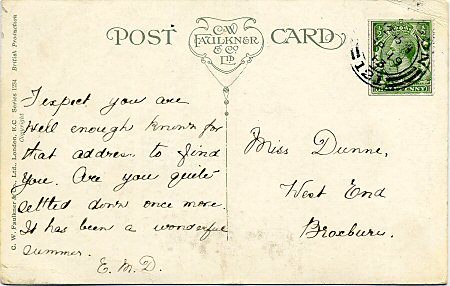 POST CARD
C.W.
FAULKNER
& Co
LTD.
C. W. Faulkner & Co., Ltd., London, E.C. Series 1234 British Production
Copyright
I expect you are
well enough known for
that address to find
you. Are you quite
settled down once more.
It has been a wonderful
summer.
E. M. D.
Miss Dunne,
West End
Broxburn.